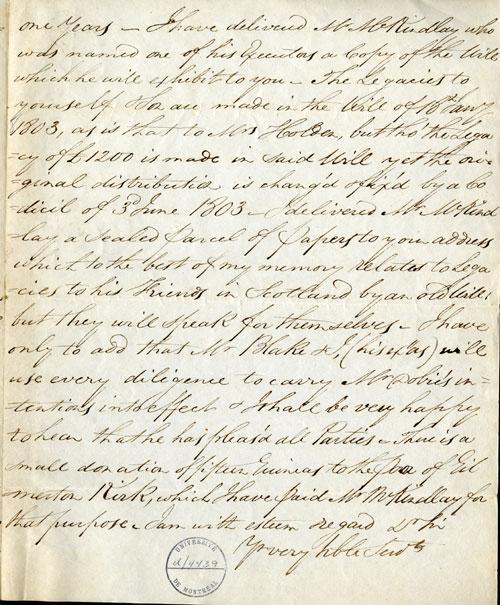 one Years – I have delivered Mr McKindlay who
was named one of his Executors a Copy of the Will
which he will exhibit to you – The Legacies to
yourself &ca are made in the Will of 18th Jany
1803, as is that to Mrs Holden, but tho the Lega
-cy of £1200 is made in said Will yet the ori-
-ginal distribution is chang'd & fix'd by a Co
dicil of 3d June 1803 – I delivered Mr McKind
-lay a Sealed Parcel of Papers to your address
which to the best of my memory relates to Lega
-cies to his Friends in Scotland by an old Will:
but they will speak for themselves – I have
only to add that Mr Blake & I, (his exrs) will
use every diligence to carry Mr Dobie's in-
-tentions into effect & I shall be very happy
to hear that he has pleas'd all Parties – There is a
small donation of fifteen Guineas to the Poor of Gil
merton Kirk, which I have paid Mr McKindlay for
that purpose – I am with esteem & regard Dr Sir
Yr very hble Servt
UNIVERSITÉ
DE MONTRÉAL
d/4439